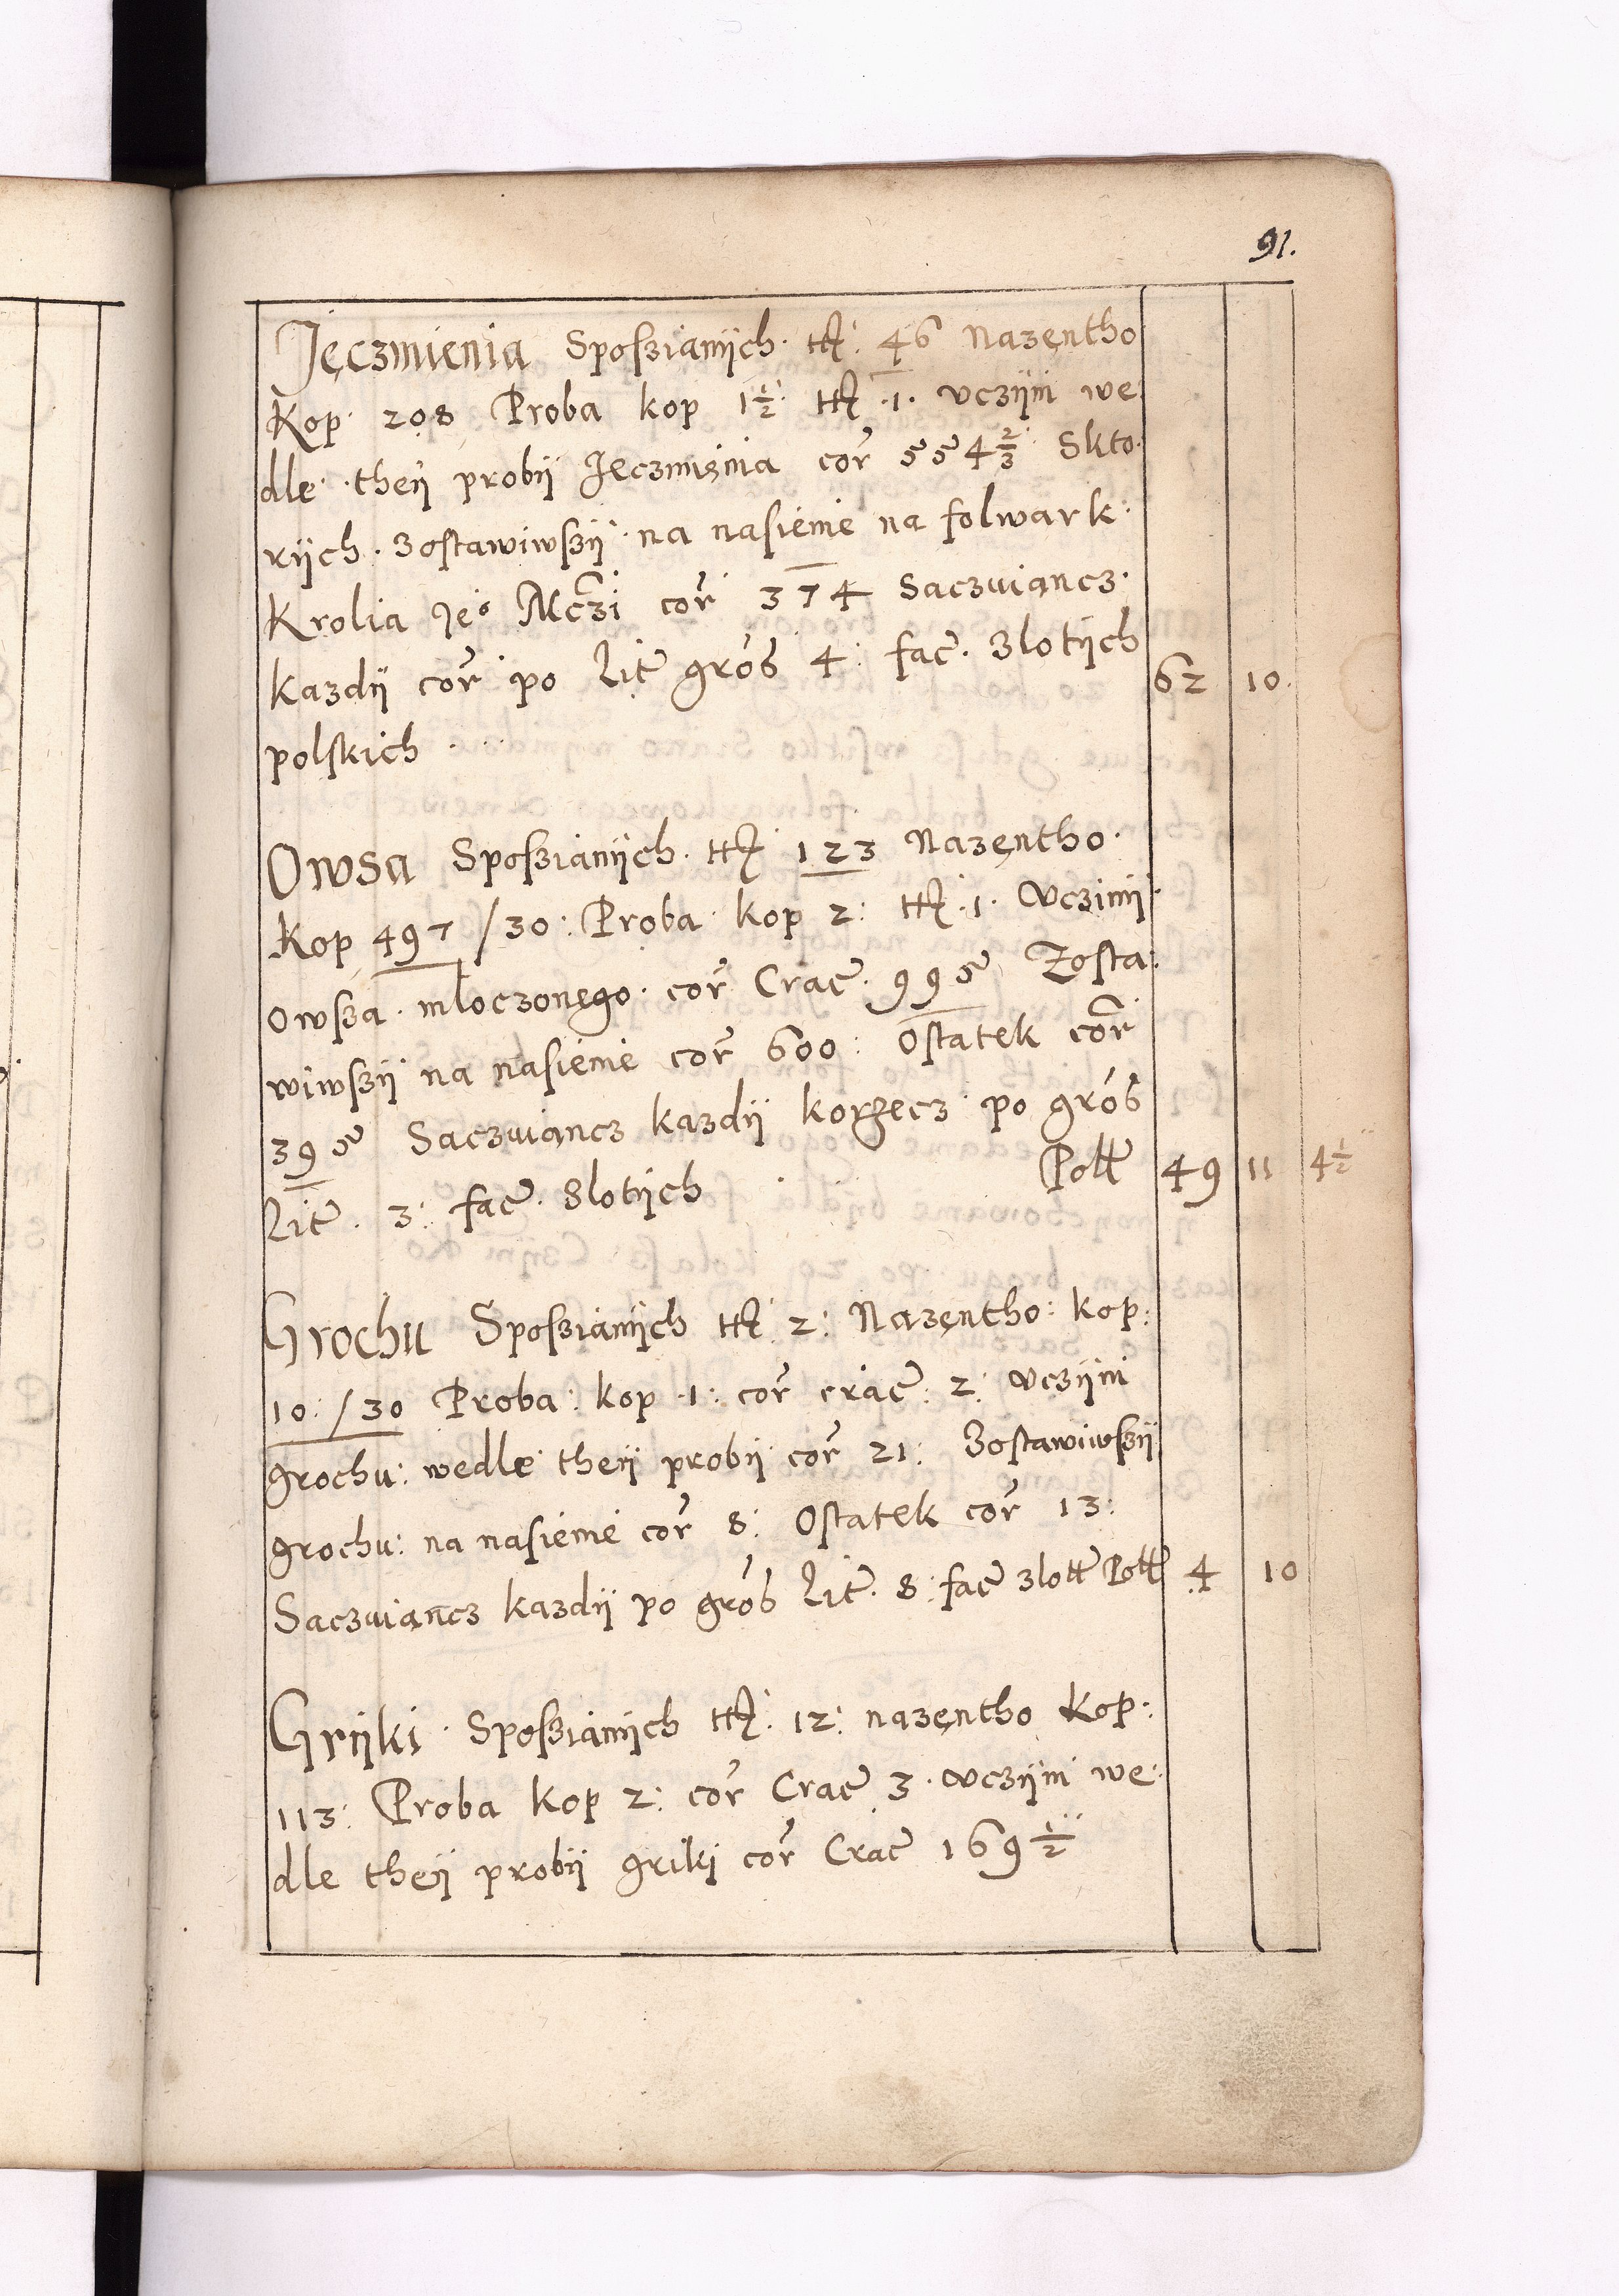 91.
Jęczmienia Spoßianÿch ttz 46 Nazęntho
Kop 208 Proba kop 1½ ttz 1. vczÿni we
dle theÿ probÿ Jęczmięnia cor 554⅔ Skto
rÿch zostawiwszÿ na nasienie na folwark
Krolia Je° Mczi cor 374 Saczuiąncz
kazdÿ cor po Lit gros 4: fac. zlotÿch 62 10.
polskich
Owsa Spoßianÿch ttz 123 Nazęntho
Kop 497/30: Proba kop 2: ttz 1. Vczinÿ
owsza mloczonęgo cor Crac. 995 Zosta
wiwszÿ na nasienie cor 600: Ostatek cor
395 Saczuiąncz kazdÿ korzecz po gros
Lit. 3: fac. zlotÿch Poll 49 11 4½
Grochu Spoßianÿch ttz 2: Nazęntho: kop:
10:/30 Proba: kop 1: cor crac: 2: vczÿni
grochu: wedle theÿ probÿ cor 21: Zostawiwszÿ
grochu: na nasienie cor 8: Ostatek cor 13:
Saczuiąncz kazdÿ po gros Lit. 8: fac zlott Poll 4 10
Grÿki Spoßianÿch ttz 12: nazęntho Kop:
113: Proba kop 2: cor Crac 3. vczÿni we
dle theÿ probÿ griki cor Crac 169½